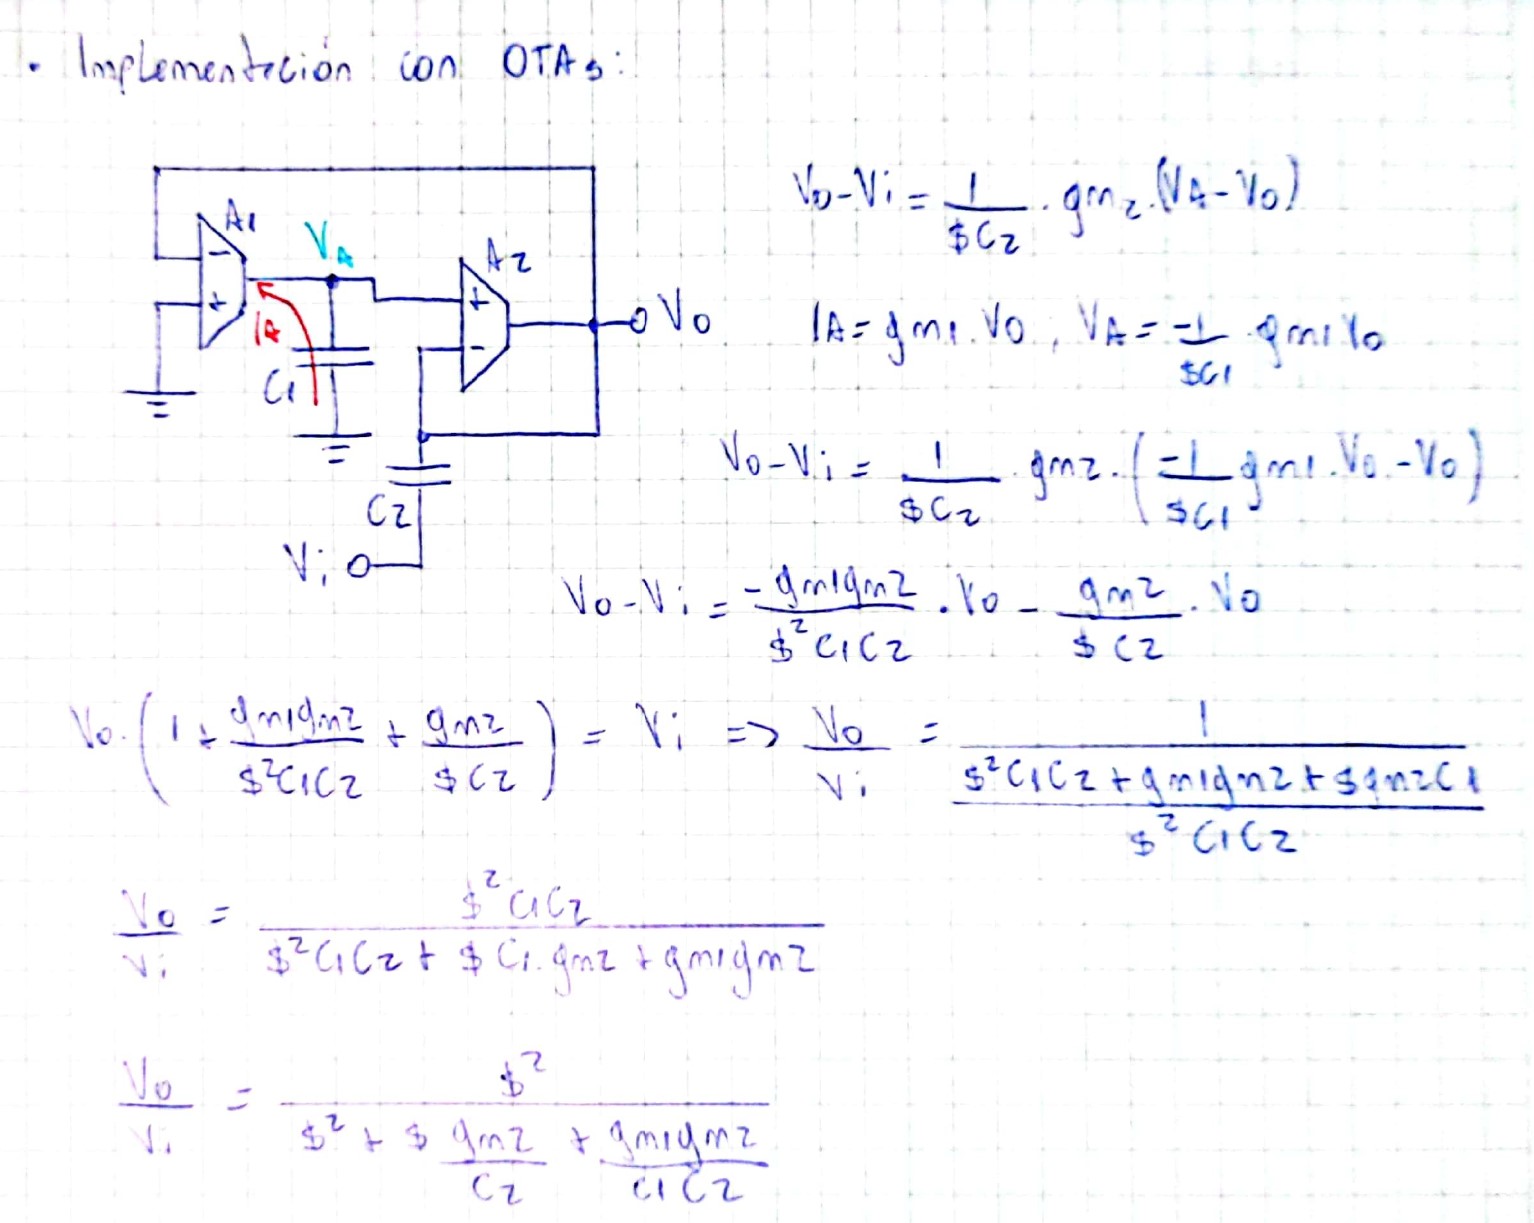 • Implementación con OTAs:
A1
VA
A2
-
+
IA
C1
+
-
Vo
C2
Vi
Vo-Vi = 1/$C2 . gm2.(VA-Vo)
IA= gm1.Vo , VA= -1/$C1 gm1Vo
Vo-Vi = 1/$C2 . gm2.(-1/$C1 gm1.Vo-Vo)
Vo-Vi = -gm1gm2/$²C1C2 . Vo - gm2/$C2 . Vo
Vo.(1 + gm1gm2/$²C1C2 + gm2/$C2) = Vi => Vo/Vi = 1/(($²C1C2 + gm1gm2 + $gm2C1)/$²C1C2)
Vo/Vi = $²C1C2/($²C1C2 + $C1.gm2 + gm1gm2)
Vo/Vi = $²/($² + $ gm2/C2 + gm1gm2/C1C2)